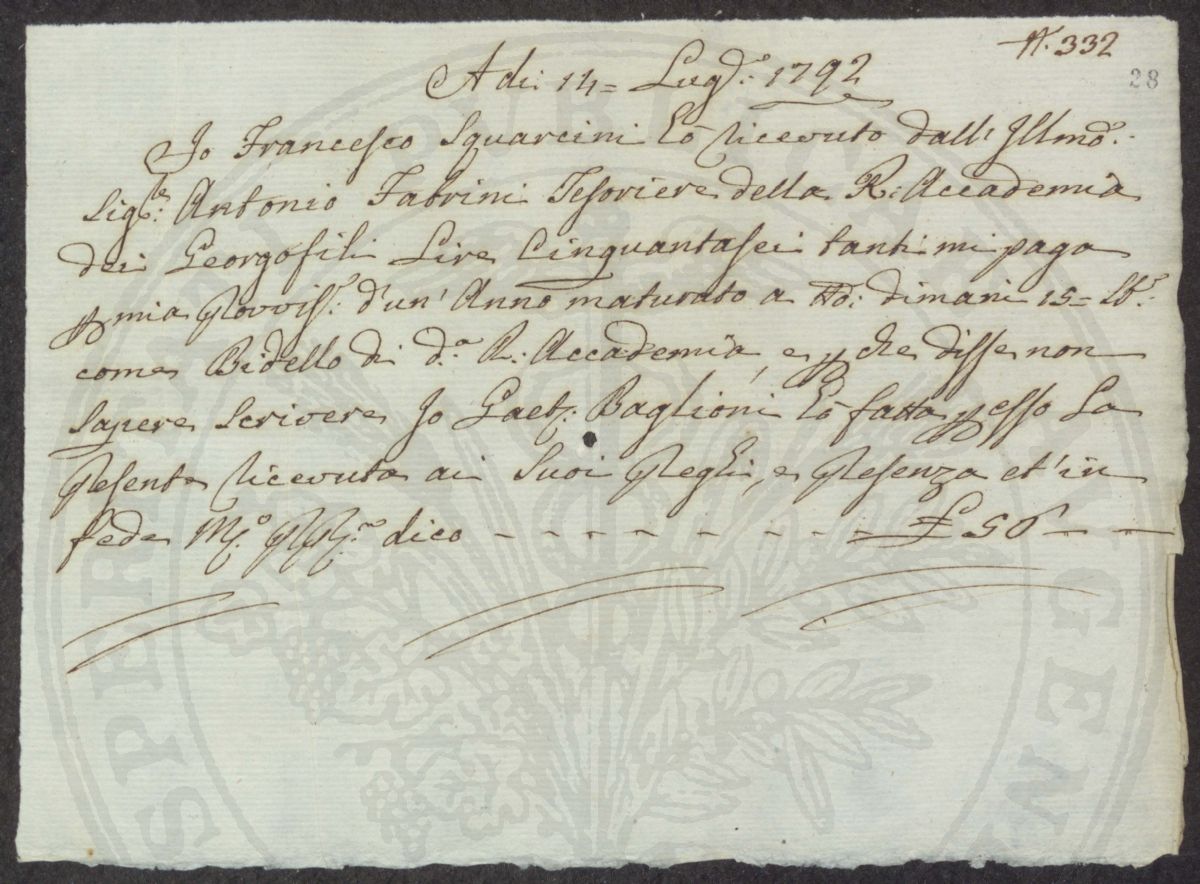 N. 332
28
A di: 14= Lug.º 1792
Io Francesco Squarcini ho ricevuto dall' Illmo.
Sig.re Antonio Fabrini Tesoriere della R: Accademia
dei Georgofili Lire Cinquantasei tanti mi paga
p mia Provvis.e d'un' Anno maturato a tto: dimani 15= st.e
come Bidello di d.a R: Accademia, e p che disse non
sapere scrivere Io Gaet.o Baglioni ho fatta p esso La
Presente ricevuta ai suoi Preghi, e Presenza et' in
fede M.o dico - - - - - - - - £ 56 - -
SPERITAT PUBLICAE AUGEN